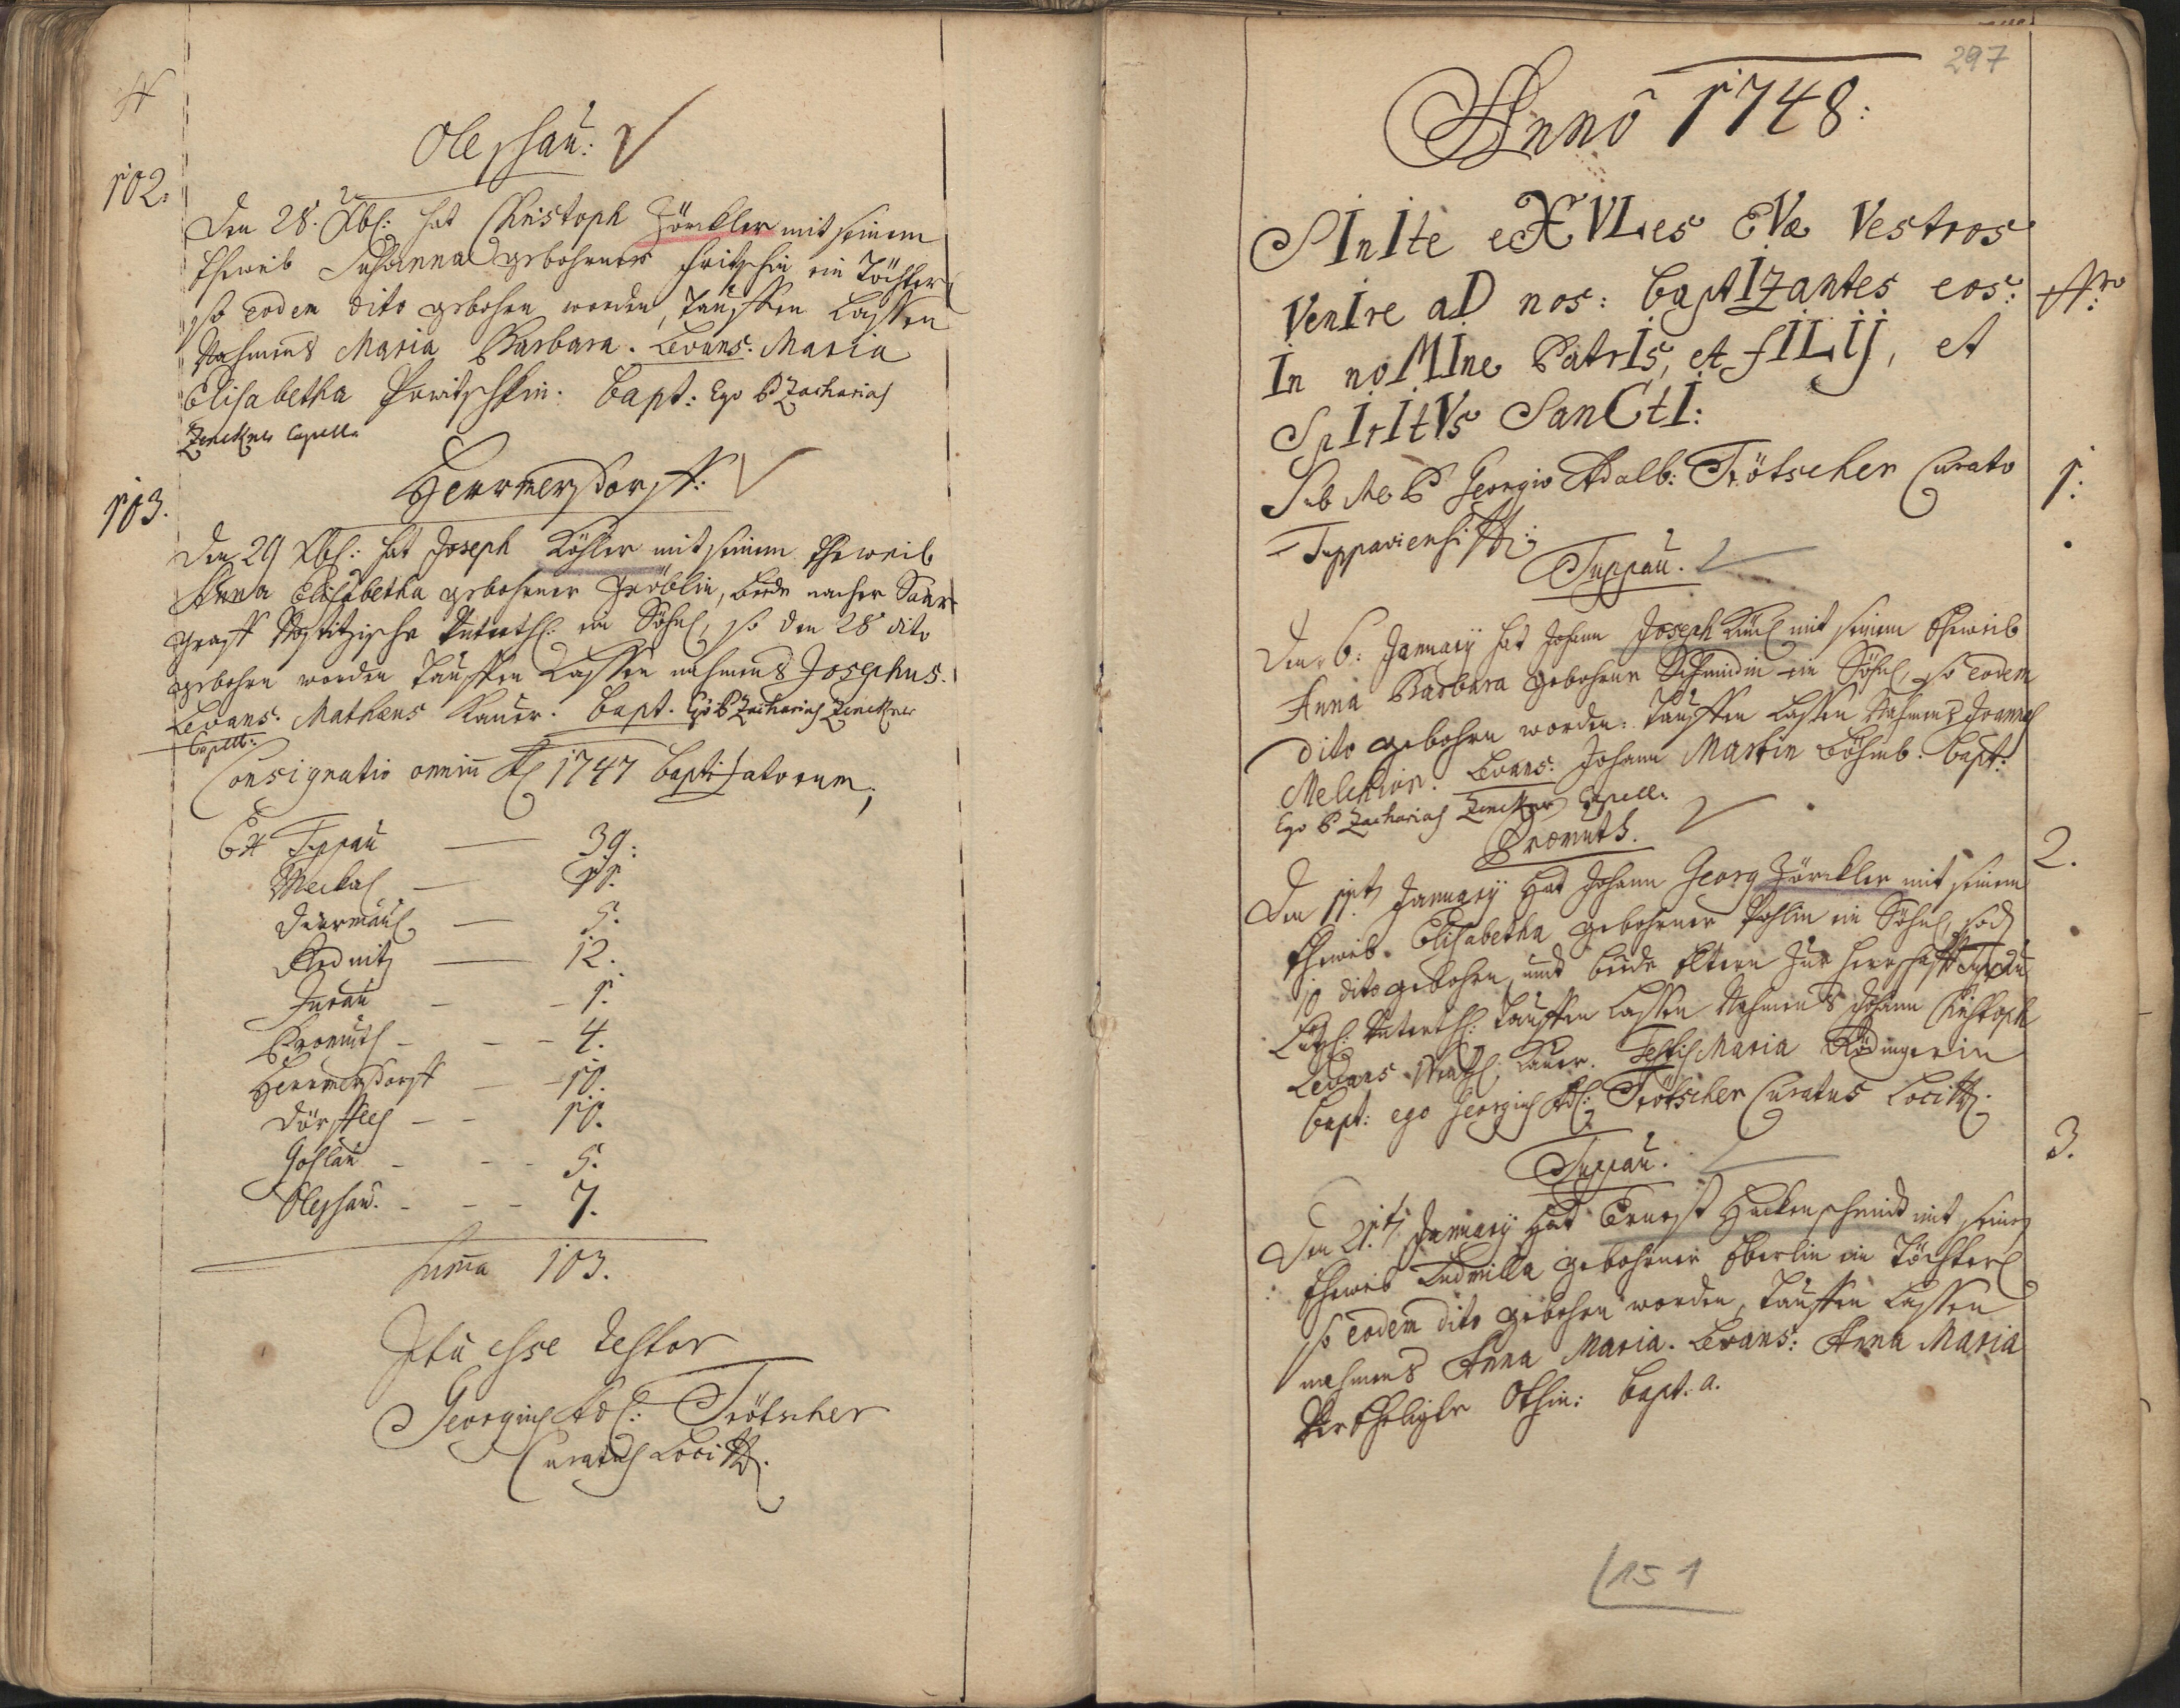 Oleschau:
102.
Den 28. Xbl: hat Christoph Zörckler mit seinem
Eheweib Susanna gebohrner Fritschin ein Töchterl
so eodem dito gebohrn worden, Tauffen Lassen
Nahmens Maria Barbara. Levans: Maria
Elisabetha Pawitschkin. bapt: Ego P Zacharias
Zenckner Capell:
Herrmersdorff:
103.
Den 29 Xbl: hat Joseph Köhler mit seinem Eheweib
Anna Elisabetha gebohrner Gröblin, beede
graff Nostitzische Unterth: ein Söhnl, so den 28 dito
gebohrn worden Tauffen Lassen nahmens Josephus.
Levans: Mathæus Kauer. bapt. Ego P Zacharias Zenckner
Capell:
Consignatio omniũ A 1747 baptisatorum;
Ex Tuppau — 39:
— 11.
Dürmaul — 5.
Rednitz — 12.
Jurau - - 1.
Promuth - - - 4.
Herrmersdorff - - 10.
Dörffles - - 10.
Goslau - - - 5.
Oleschau. - - - 7.
Suma 103.
Ita esse testor
Georgius Ad: Trötscher
Curatus Loci
297
Anno 1748:
SInIte eXVLes EVæ Vestros
VenIre aD nos: baptIzantes eos:
In noMIne PatrIs, et fILIj, et
SpIrItVs SanCtI:
Nro:
Sub Me P Georgio Adalb: Trötscher Curato
Tuppaviensi
1:
Tuppau.
Den 6: January hat Johann Joseph mit seinem Eheweib
Anna Barbara gebohrner Schmidin ein Söhnl, so eodem
dito gebohrn worden: Tauffen Lassen Nahmens Joannes
Melchior. Levans: Johann Martin Böhmb. bapt:
Ego P Zacharias Zenckner Capell:
Promuth.
2.
Den 11t January Hat Johann Georg Zörckler mit seinem
Eheweib Elisabetha gebohrner Pohlin ein Söhnl, so d
10 dito gebohrn, und beede Eltern zur Herrschafft Tuppau
Unterth: Tauffen Lassen Nahmens Johann Christoph
Levans Kauer. Testis Maria Rödingerin
bapt: ego Georgius Ad: Trötscher Curatus Loci
Tuppau.
3.
Den 21t January Hat Ernest Hackenschmidt mit seinem
Eheweib Ludmilla gebohrner Eberlin ein Töchterl
so eodem dito gebohrn worden, Tauffen Lassen
nahmens Anna Maria. Levans: Anna Maria
Vereheligte bapt. a.
151